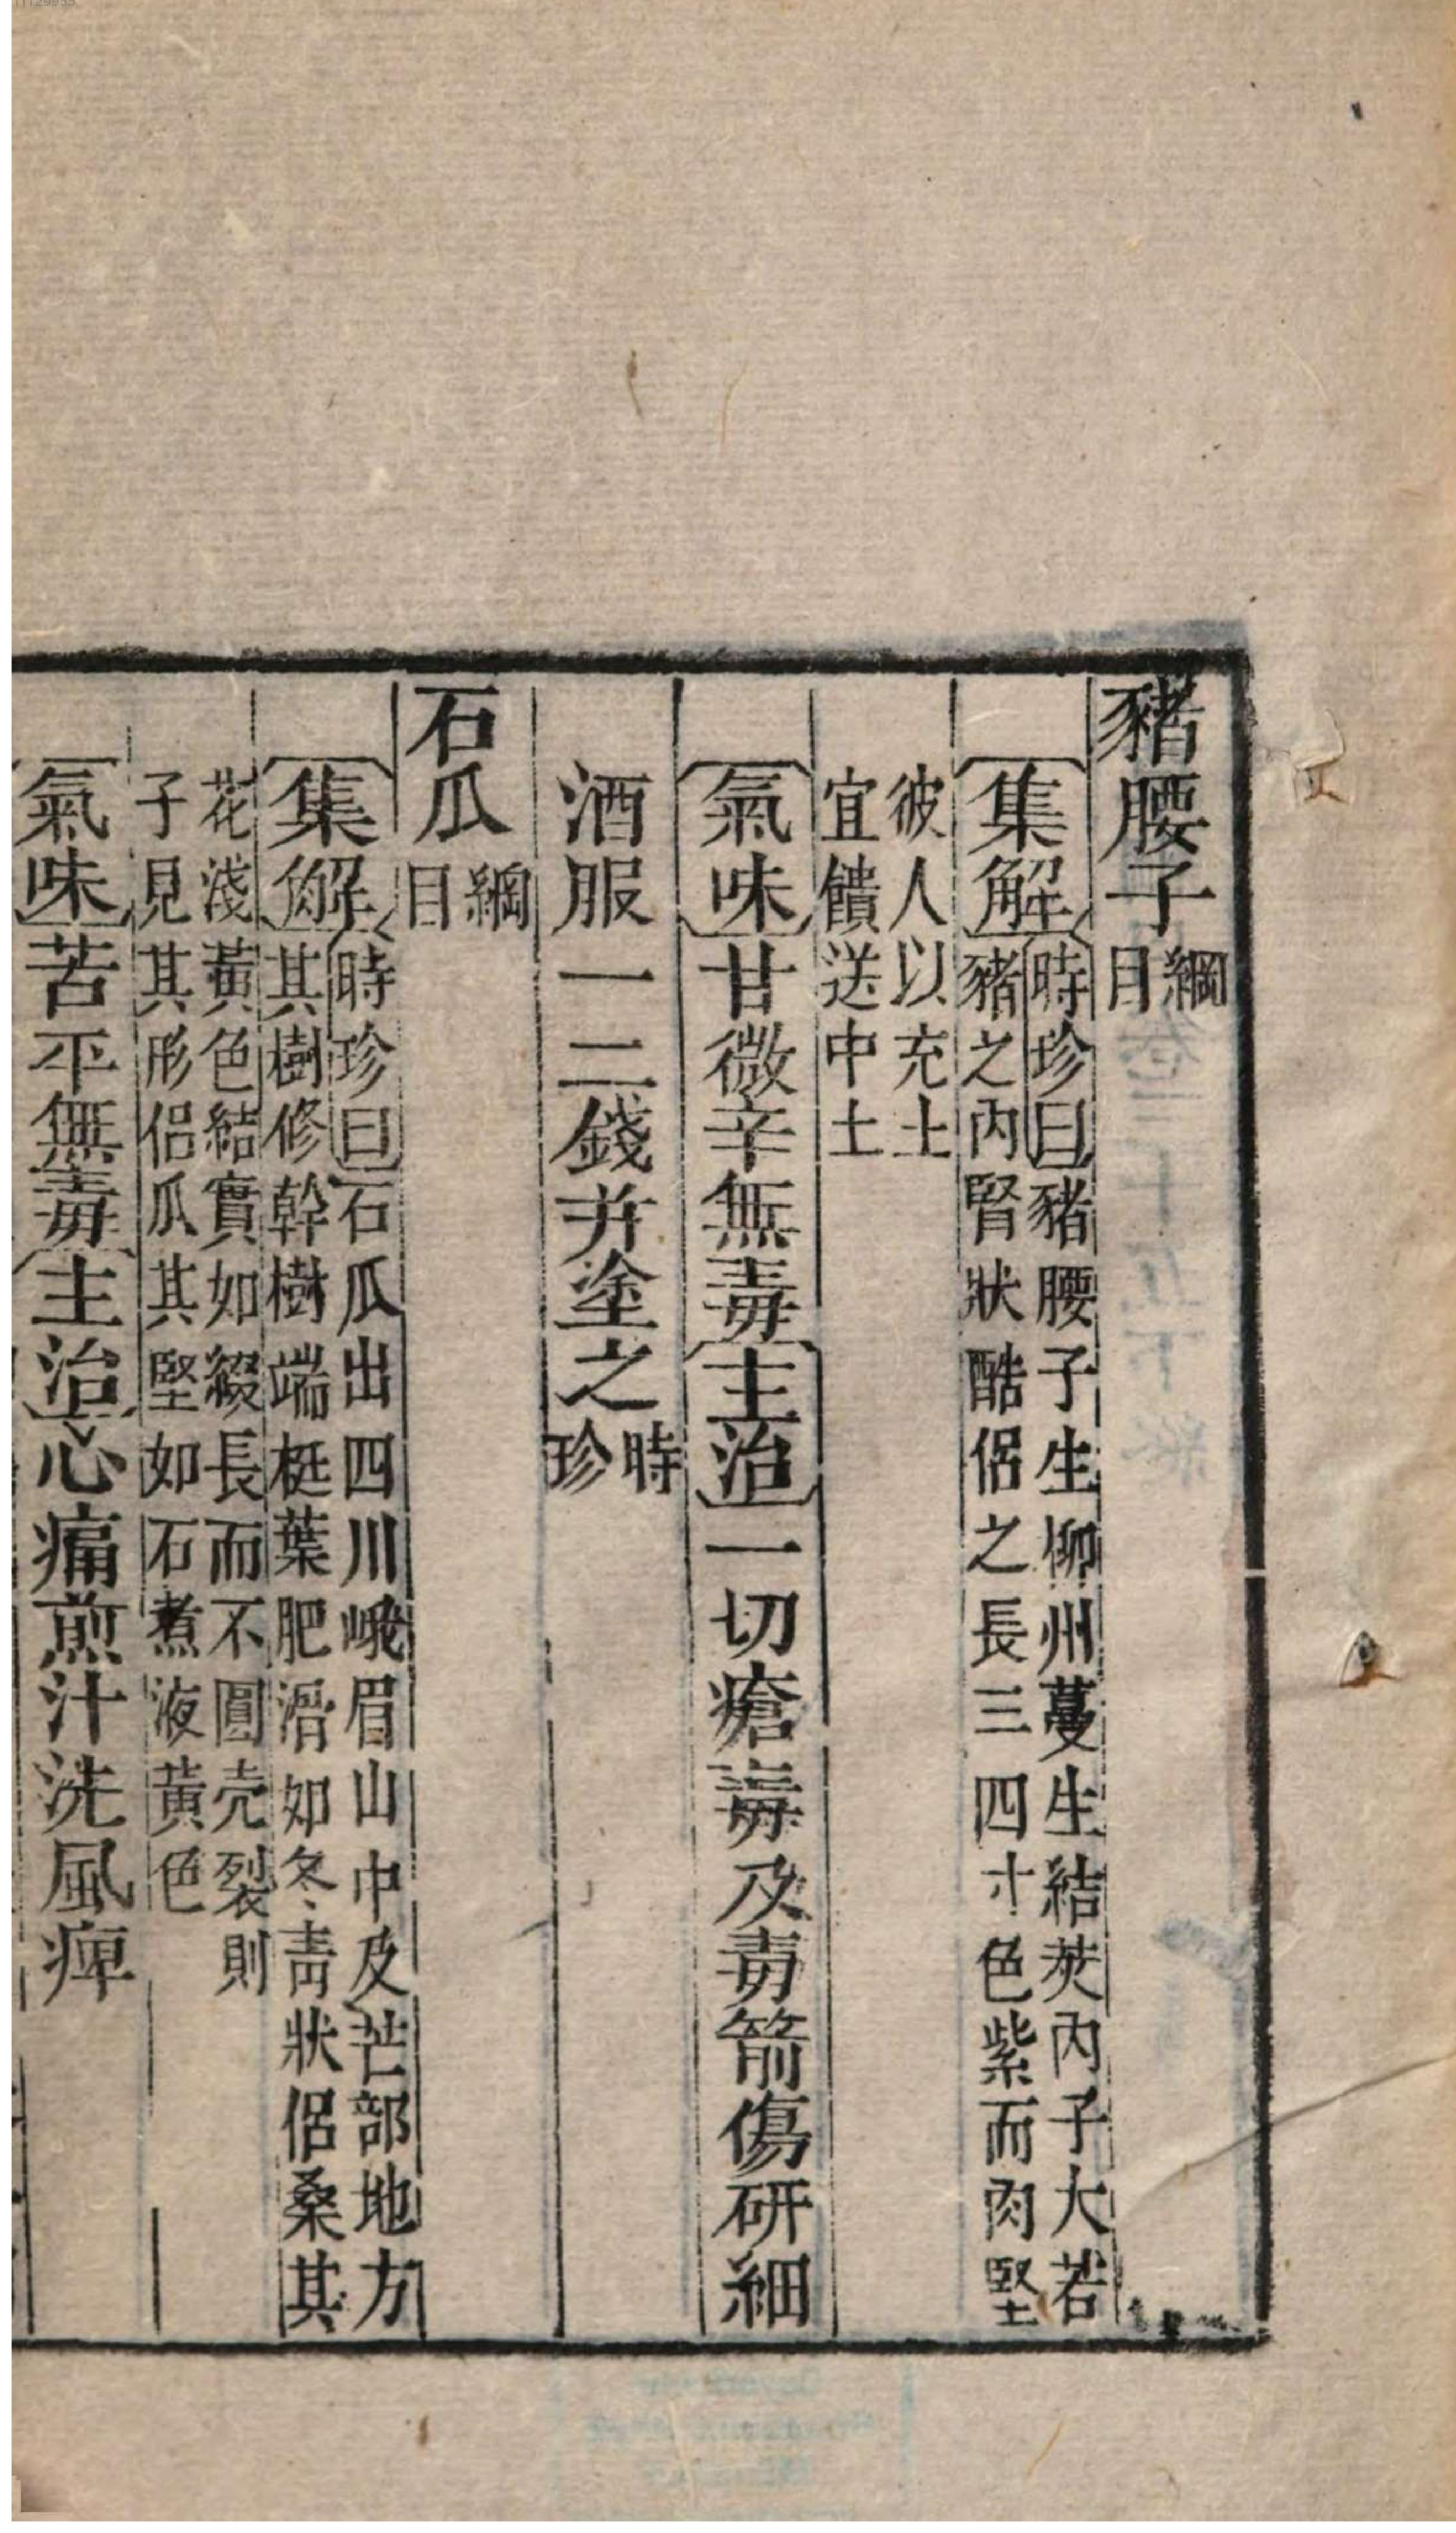 豬腰子綱目
〔集解〕〔時珍曰〕豬腰子生柳州蔓生結莢内子大若
豬之内腎狀酷侣之長三四寸色紫而肉堅
彼人以充土
宜饋送中土
〔氣味〕甘微辛無毒〔主治〕一切瘡毒及毒箭傷研細
酒服一二錢并塗之時珍
石瓜綱目
〔集解〕〔時珍曰〕石瓜出四川峨眉山中及芒部地方
其樹修幹樹端梃葉肥滑如冬青狀侣桑其
花淺黃色結實如綴長而不圓壳裂則
子見其形侣瓜其堅如石煮液黃色
〔氣味〕苦平無毒〔主治〕心痛煎汁洗風痺